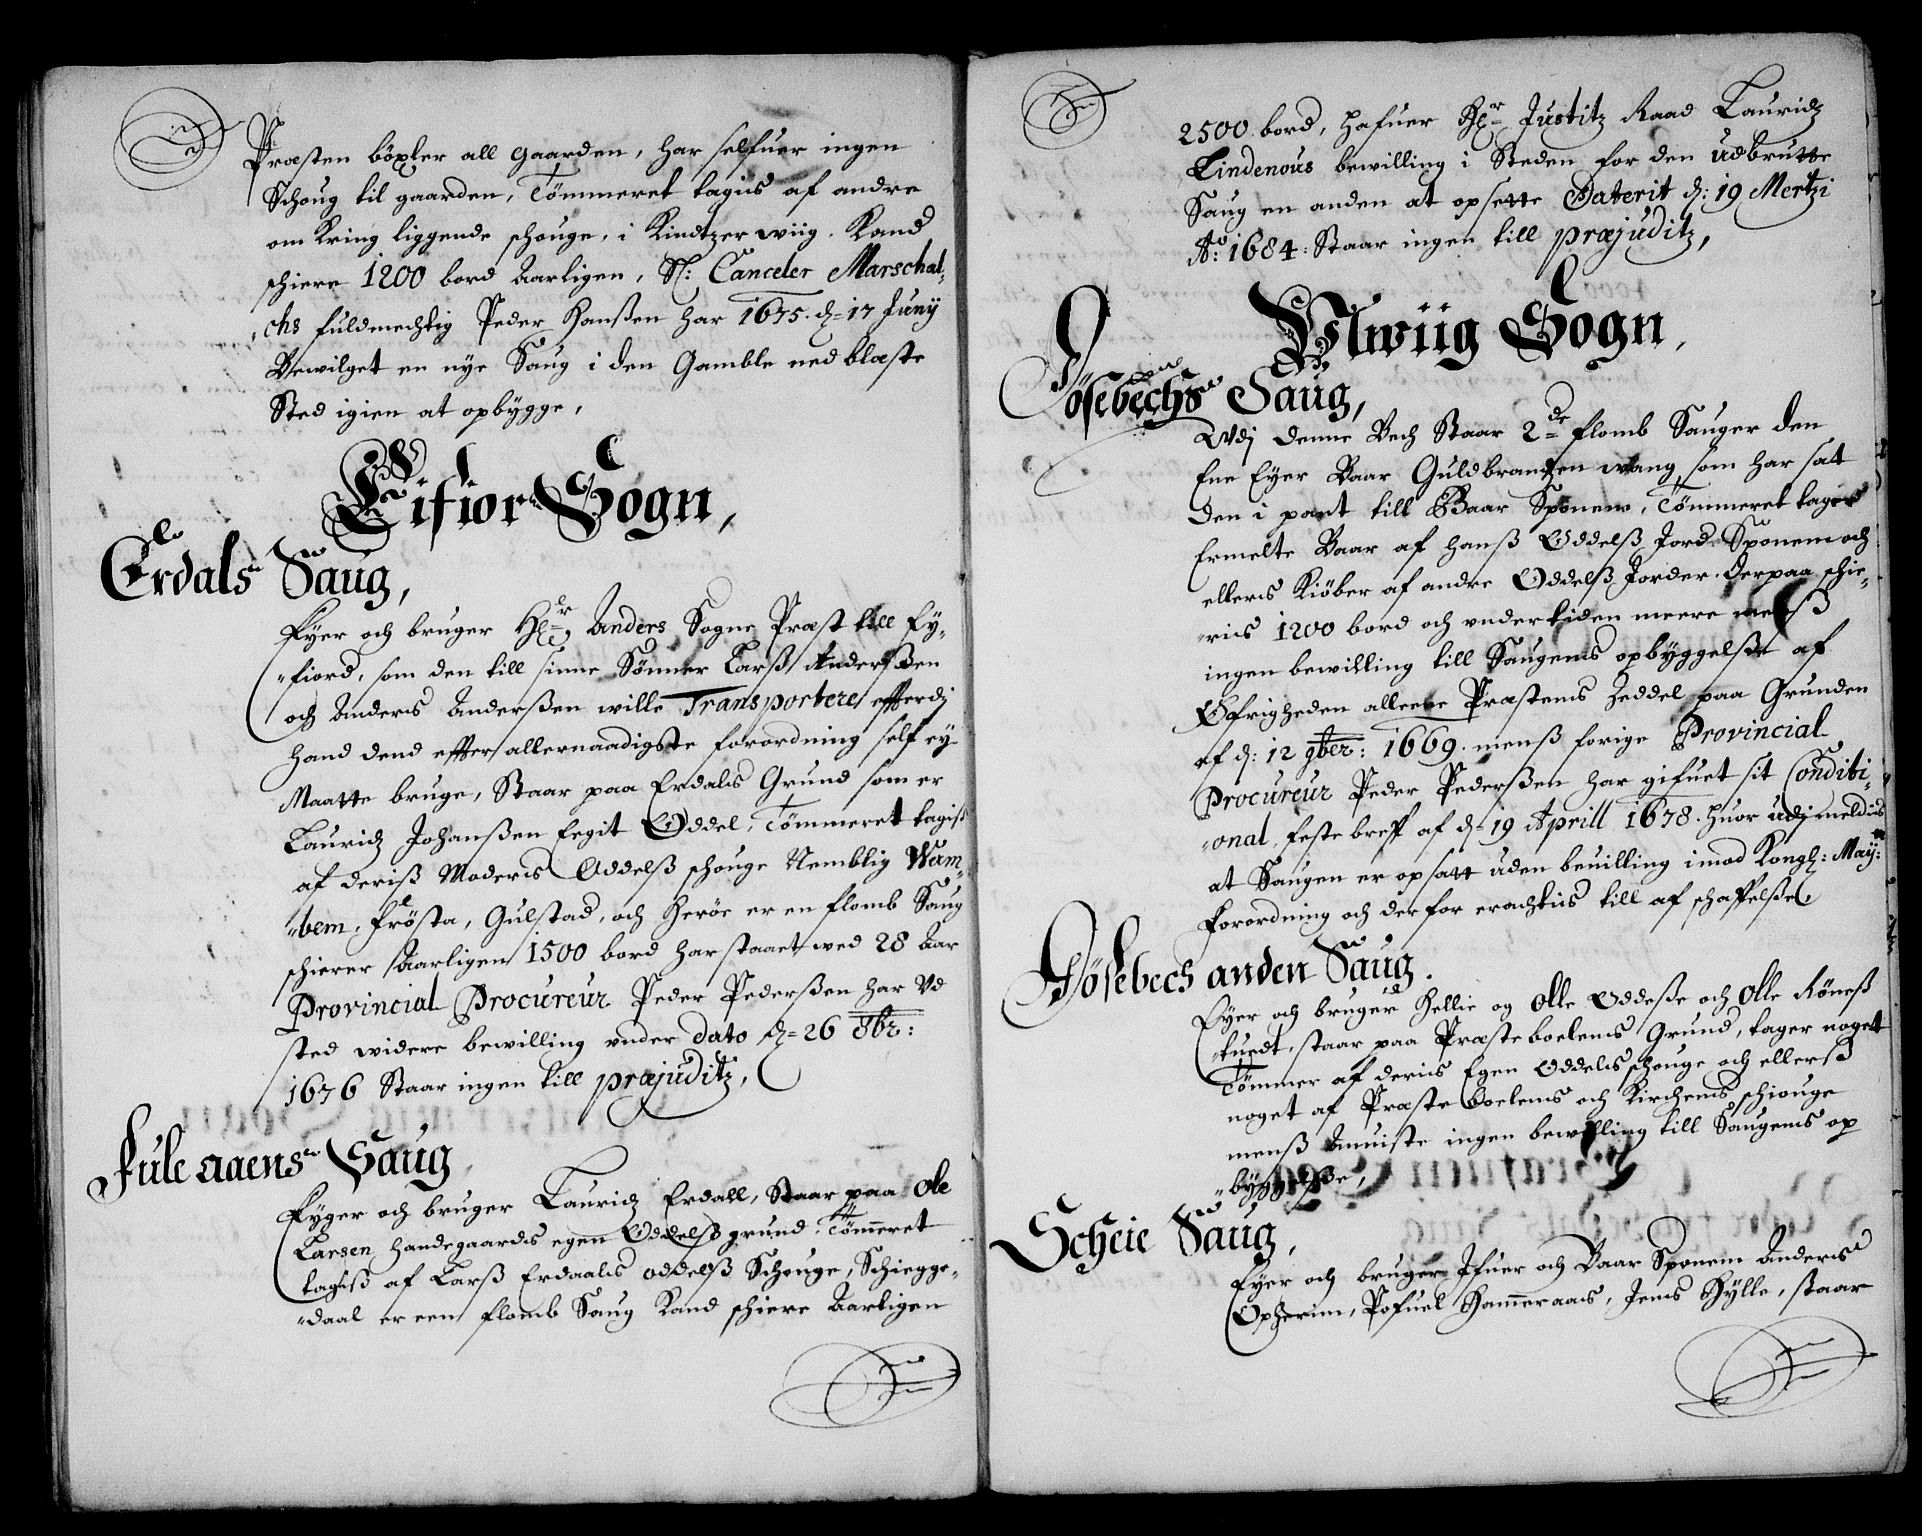 Præsten böxler all gaarden, har selfuer ingen
Schoug til gaarden, Tömmeret tagis af andre
om kring liggende schouge, i Kindtzerwiig. Kand
schiere 1200 bord Aarligen, Sl: Canceler Marschal-
"chs fuldmechtig Peder Hanßen har 1675. d= 17 Juny
Bewilget en nye Saug i den Gamble nedblæste
Sted igien at opbygge,
Eifior Sogn,
Erdals Saug,
Eyer och bruger Hr: Anders Sogne Præst till Ey-
"fiord, som den till sinne Sönner Larß Anderßen
och Anders Anderßen wille Transportere, effterdj
hand dend effter allernaadigste forordning self ey
Maatte bruge, Staar paa Erdals Grund som er
Lauridz Johanßen Legit Oddel, Tömmeret tagiß
af deris Moders Oddelß schouge Nemblig Wam-
"bem, Frösta, Gulstad, och Heröe er en flomb Saug
schierer Aarligen 1500 bord har staaet wed 28 Aar
Provincial Procureur Peder Pederßen har Vd
sted widere bewilling under dato d= 26 8br:
1676 Staar ingen till præjuditz,
Fule aaens Saug
Eyger och bruger Lauridz Erdall, Staar paa Ole
Larsen handegaards egen Oddelß grund. Tömeret
tagiß af Larß Erdaals oddelß Schouge, Schiegge-
"daal er een flomb Saug Kand schiere Aarligen
2500 bord, hafuer Hr: Justitz Raad Lauridz
Lindenous bewilling i Steden for den Udbrutte
Saug en anden at opsette Daterit d: 19 Mertzi
Ao: 1684: Staar ingen till præjuditz,
Vlwiig Sogn,
Jösebechs Saug,
Vdj denne Bech Staar 2de flomb Sauger den
Ene Eyer Baar Guldbrandzen wang, som har sat
den i pant till Baar Sponem, Tömmeret tager
Ermelte Baar af hanß Oddelß Jord Sponem och
ellers Kiöber af andre Oddelß Jorder. derpaa schie-
"ris 1200 bord och undertiden meere menß
ingen bewilling till Saugens opbyggelße af
Øfrigheden alleene Præstens Zeddel paa Grunden
af d: 12 9ber: 1669. menß forige Provincial
Procureur Peder Pederßen har gifuet sit Conditi-
"onal feste breff af d= 19 Aprill 1678. huor udj meldis
at Saugen er opsatt uden beuilling imod Kongl: May:
Forordning och derfor erachtis till af schaffelße,
Jösebech anden Saug.
Eyer och bruger Hellie og Olle Oddeße och Olle Röneß
"tuedt, staar paa Præsteboelens Grund, tager noget
Tömmer af deris Egen Oddels schouge och ellerß
noget af Præsteboelens och Kirchens schiouge
menß Anuiste ingen bewilling till Saugens op
"byggelße,
Scheie Saug,
Eyer och bruger Ifuer och Baar Sponem Anders
Opheim, Pofuel Hameraas, Jens Hylle, staar